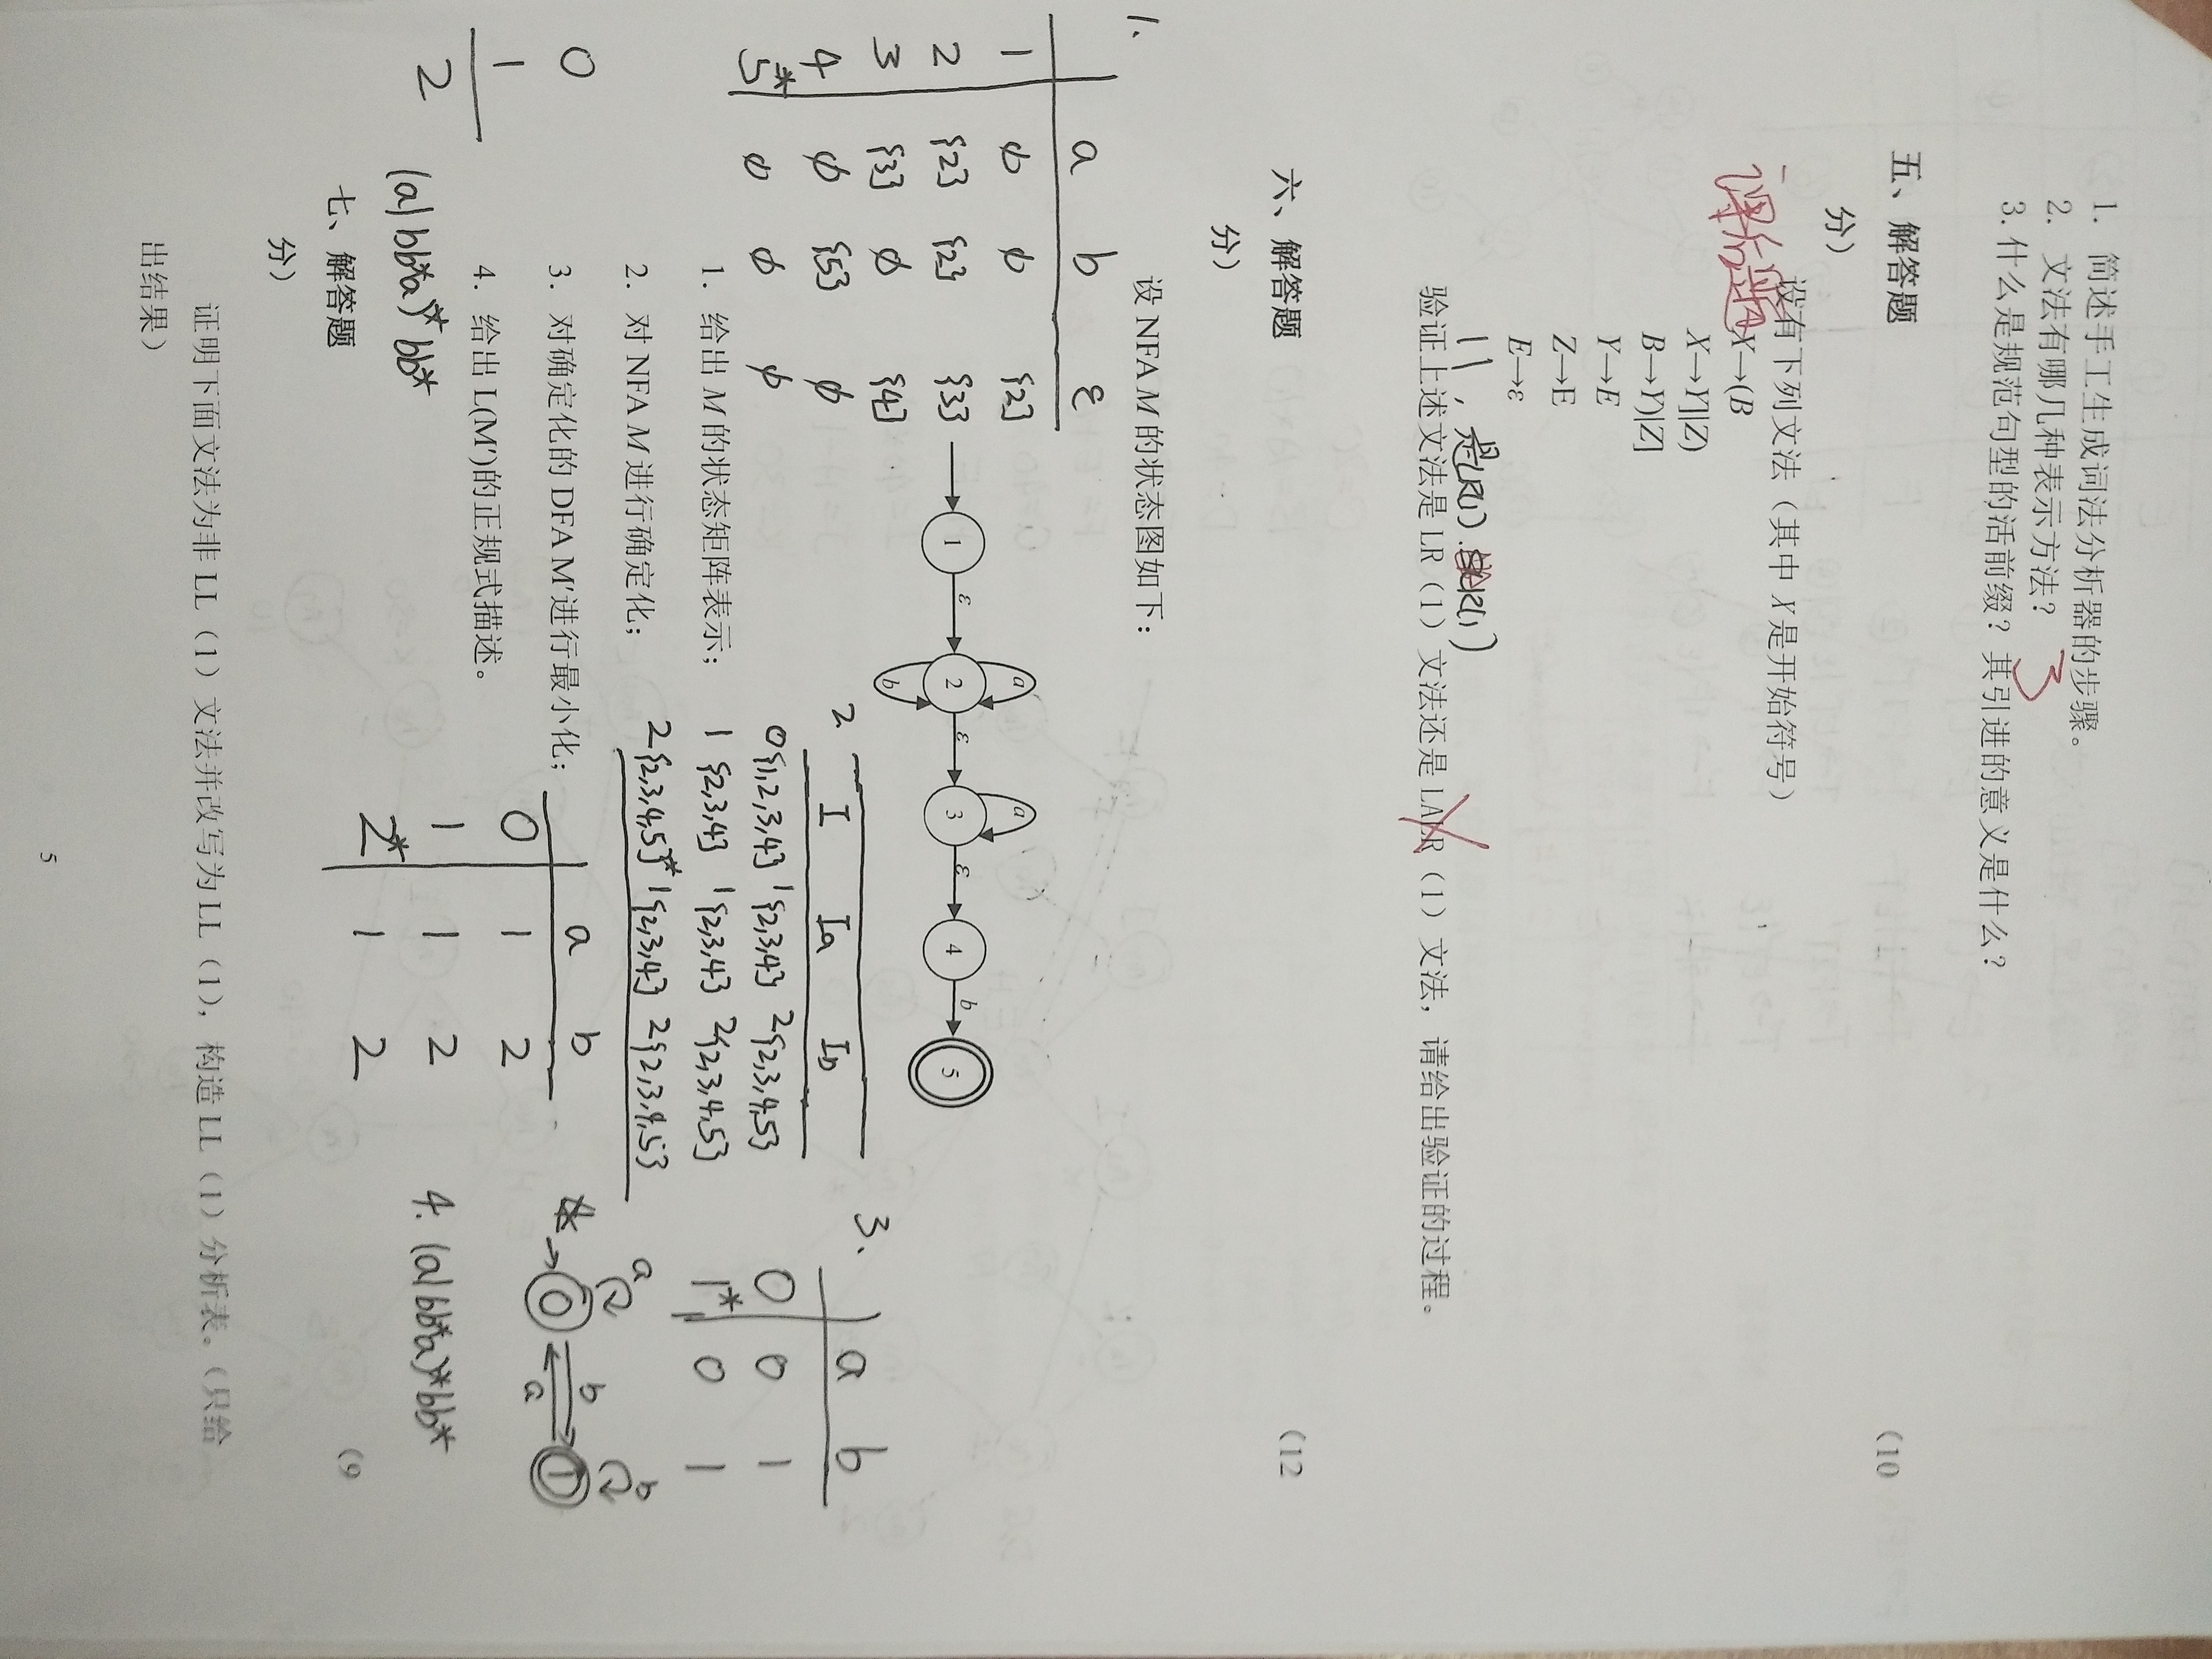 1. 简述手工生成词法分析器的步骤。
2. 文法有哪几种表示方法?
3
3. 什么是规范句型的活前缀? 其引进的意义是什么?
五、解答题 (10
分)
设有下列文法(其中 X 是开始符号)
X→(B
X→Y]|Z)
B→Y)|Z]
Y→E
Z→E
E→ε
是LR(1).
验证上述文法是 LR(1)文法还是 LALR(1)文法,请给出验证的过程。
六、解答题 (12
分)
设 NFA M 的状态图如下:
1 ε 2 ε 3 ε 4 b 5
a b a
1.
a b ε
1 ϕ ϕ {2}
2 {2} {2} {3}
3 {3} ϕ {4}
4 ϕ {5} ϕ
5* ϕ ϕ ϕ
1. 给出 M 的状态矩阵表示;
2. 对 NFA M 进行确定化;
3. 对确定化的 DFA M′进行最小化;
4. 给出 L(M′)的正规式描述。
2
I Ia Ib
0{1,2,3,4} 1{2,3,4} 2{2,3,4,5}
1 {2,3,4} 1{2,3,4} 2{2,3,4,5}
2{2,3,4,5}* 1{2,3,4} 2{2,3,4,5}
0
1
2
a b
0 1 2
1 1 2
2* 1 2
3、
a b
0 0 1
1* 0 1
a b
0 b 1
a
(a|bb*a)*bb*
4. (a|bb*a)*bb*
七、解答题 (9
分)
证明下面文法为非 LL(1)文法并改写为 LL(1),构造 LL(1)分析表。(只给
出结果)
5